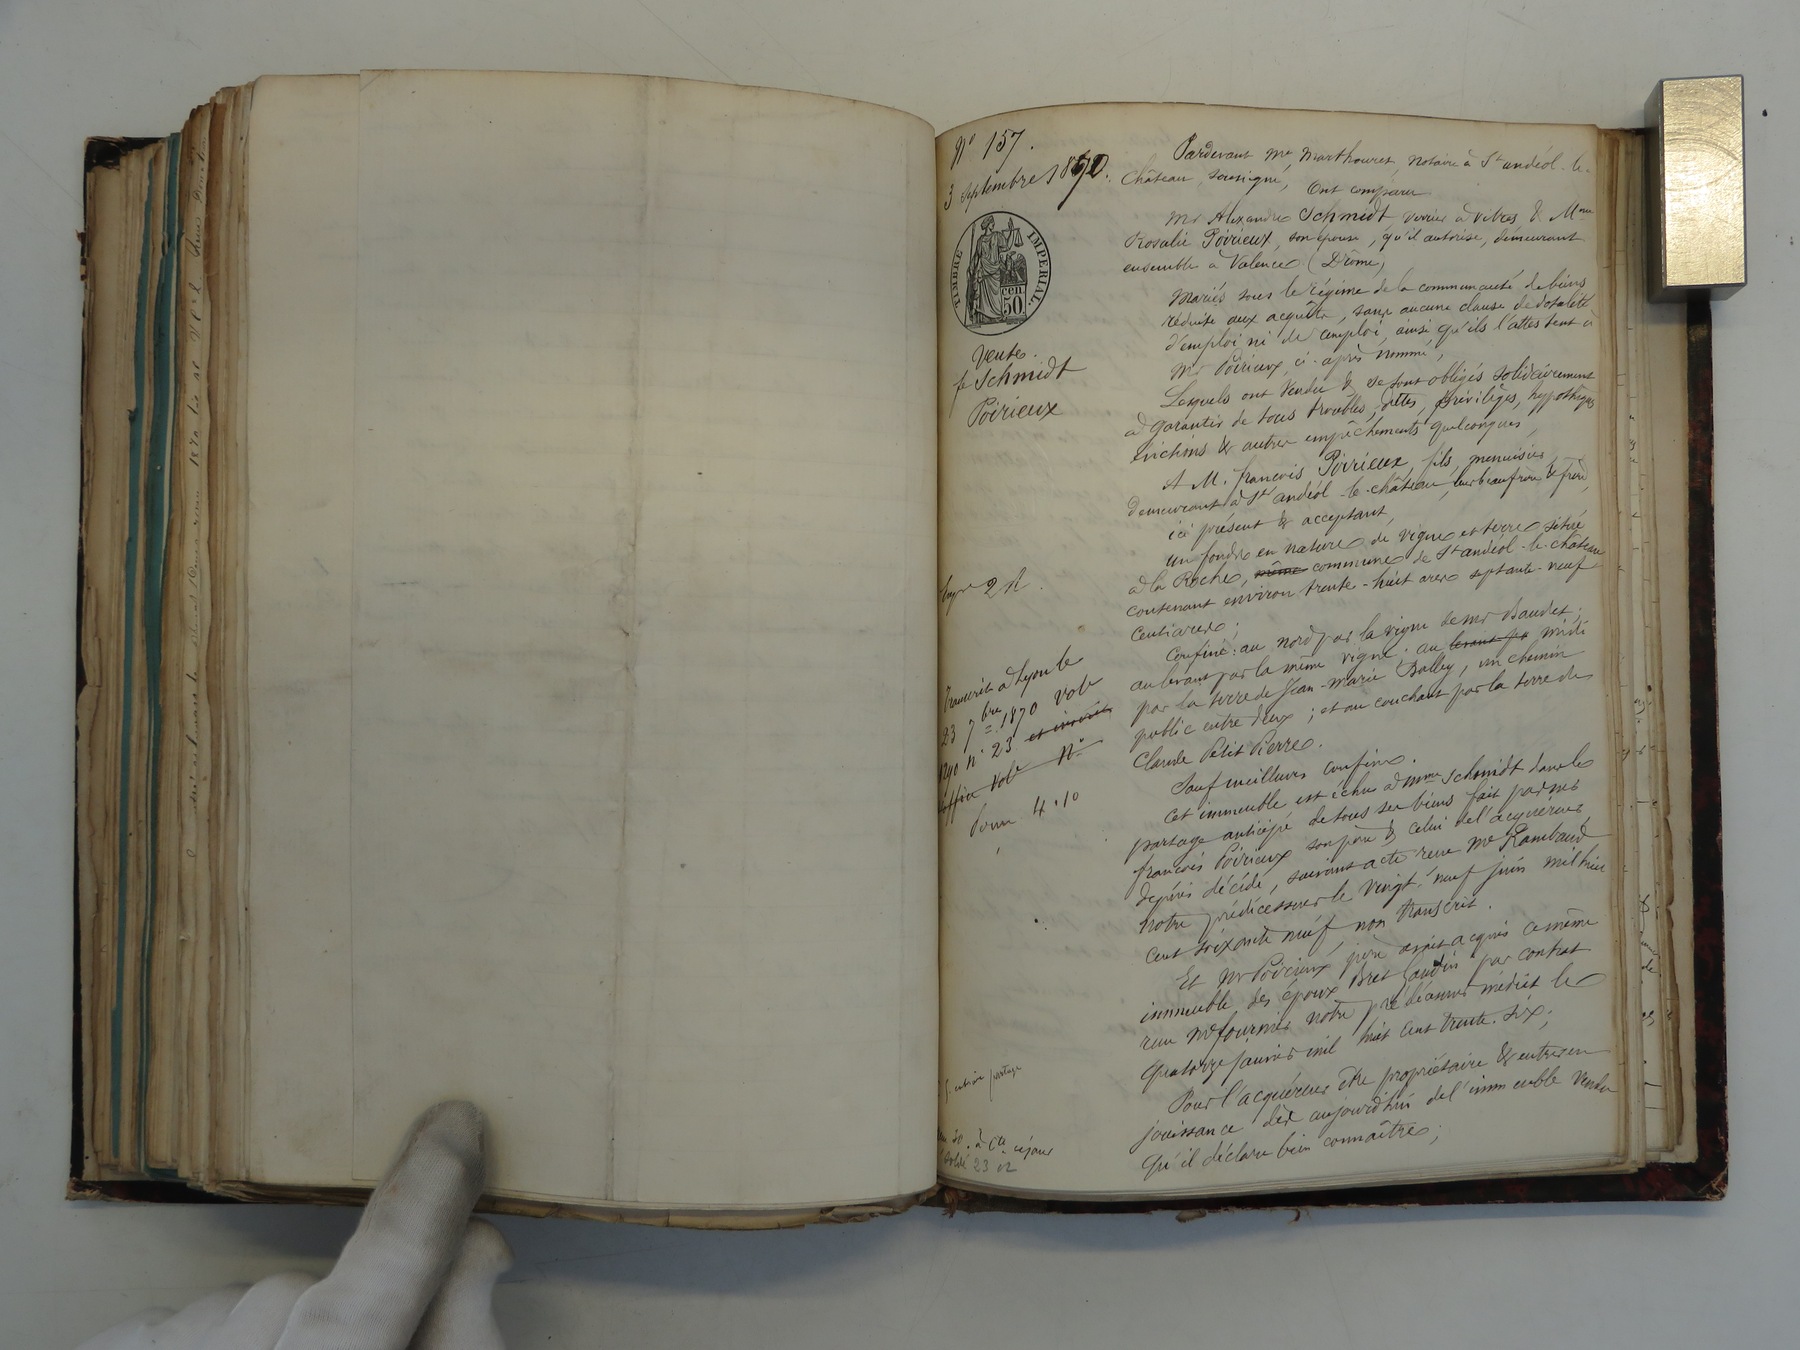 N° 157.
3 septembre 1870.
TIMBRE IMPÉRIAL
50 cen.
Vente.
p Schmidt
à
Poirieux
Transcrit à Lyon le
23 7bre 1870 vole
1290 n° 23 et inscrit
d'office Vole N°
Pour 4.10
partage
Pardevant Me Marthouret, Notaire à St andéol-le-
Château, soussigné, Ont comparu
Mr Alexandre Schmidt, verrier à vitres & Mme
Rosalie Poirieux, son épouse, qu'il autorise, demeurant
ensemble à Valence (Drôme)
Mariés sous le Régime de la communauté de biens
réduite aux acquêts, sans aucune clause de dotalité
d'emploi ni de remploi, ainsi qu'ils l'attestent à
Mr Poirieux, ci-après nommé,
Lesquels ont vendu & se sont obligés solidairement
à garantir de tous troubles, dettes, privilèges, hypothèques
évictions & autres empêchements quelconques,
A M. françois Poirieux, fils, menuisier,
demeurant à St andéol-le-château, leur beau frère & frère,
ici présent & acceptant,
un fonds en nature de vigne et terre situé
à la Roche, même commune de St andéol-le-château
contenant environ trente-huit ares septante-neuf
centiares;
Confiné: au nord par la vigne de mr Baudet;
au levant par la même vigne; au levant par midi
par la terre de Jean-Marie Balley, un chemin
public entre deux; et au couchant par la terre de
Claude Petit Pierre.
Sauf meilleurs confins.
Cet immeuble est échu à Mme Schmidt dans le
partage anticipé de tous ses biens fait par mr
françois Poirieux son père & celui de l'acquéreur,
depuis décédé, suivant acte reçu Me Rambaud
notre prédécesseur le vingt-neuf juin mil huit
cent soixante neuf, non transcrit.
Et Mr Poirieux père avait acquis ce même
immeuble des époux Bret Gaudin par contrat
reçu Me fournier notre prédécesseur médiat le
quatorze janvier mil huit cent trente-six;
Pour l'acquéreur être propriétaire & entrer en
jouissance dès aujourd'hui de l'immeuble vendu
qu'il déclare bien connaître;